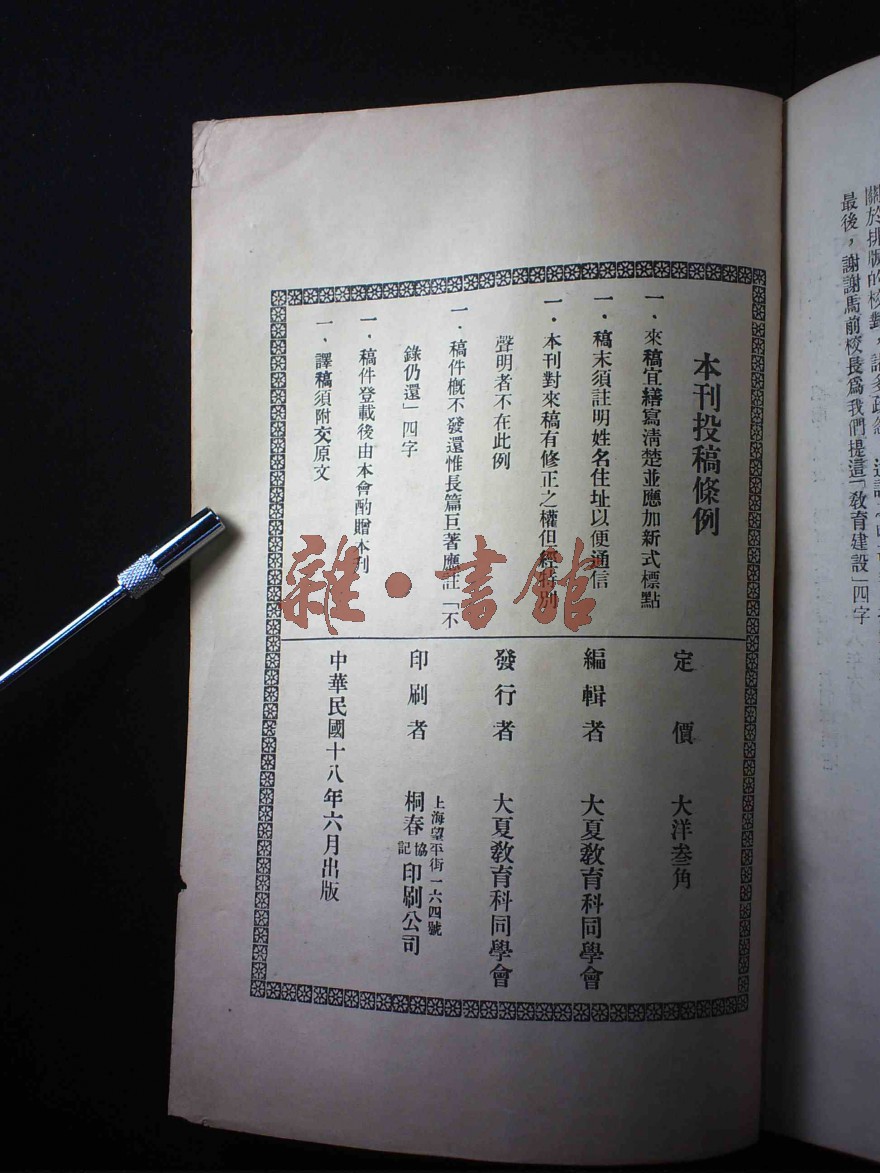 最後，謝謝馬前校長爲我們提這「教育建設」四字
本刊投稿條例
一．來稿宜繕寫淸楚並應加新式標點
一．稿末須註明姓名住址以便通信
一．本刊對來稿有修正之權但經特別
聲明者不在此例
一．稿件槪不發還惟長篇巨著應註「不
錄仍還」四字
一．稿件登載後由本會酌贈本刊
一．譯稿須附交原文
定價　大洋叁角
編輯者　大夏教育科同學會
發行者　大夏教育科同學會
上海望平街一六四號
印刷者　桐春協記印刷公司
中華民國十八年六月出版
雜·書館